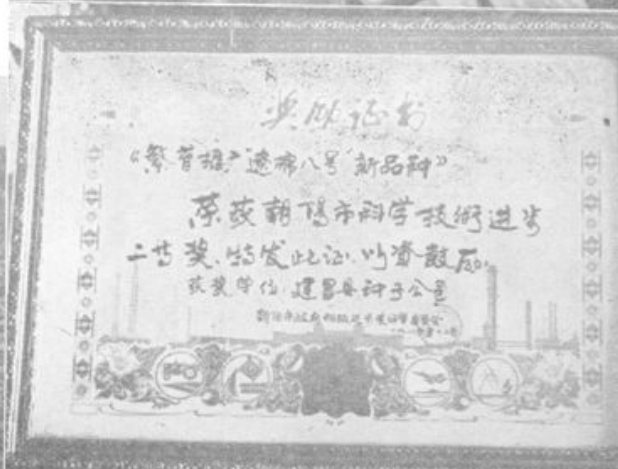 奖励证书
《繁育推“辽棉八号”新品种》
荣获朝阳市科学技术进步
二等奖、特发此证、以资鼓励。
获奖单位:建昌县种子公司